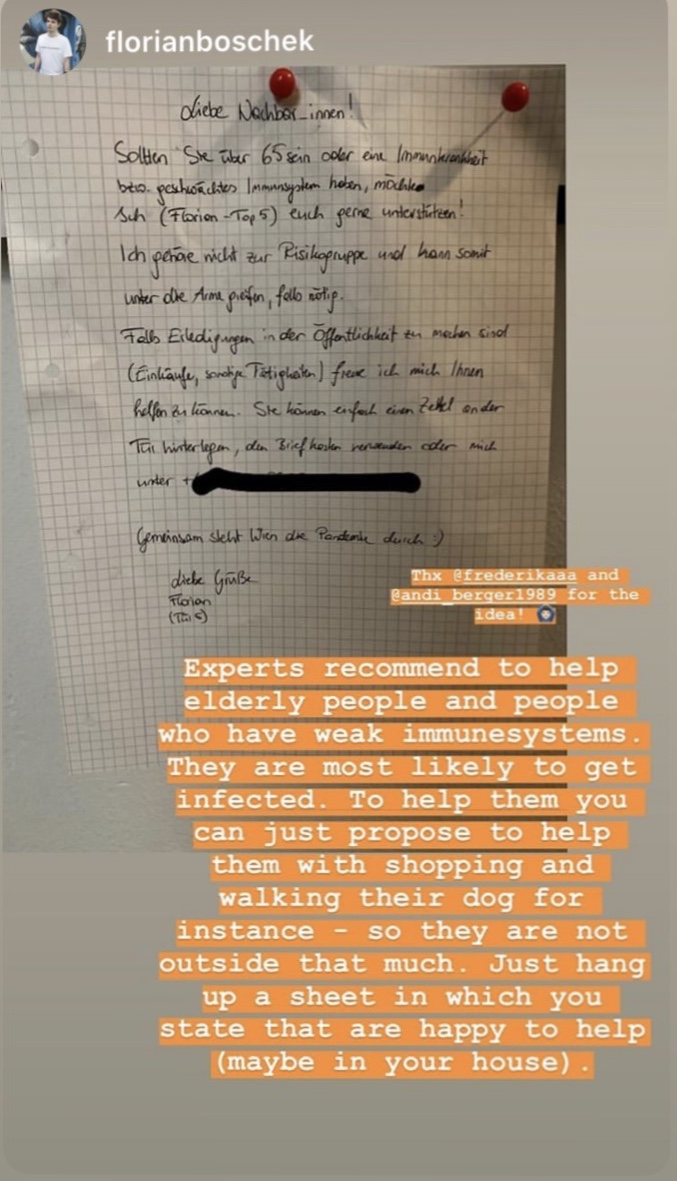 florianboschek
Liebe Nachbar_innen!
Sollten Sie über 65 sein oder eine Immunkrankheit
bzw. geschwächtes Immunsystem haben, möchte
Ich (Florian - Top 5) euch gerne unterstützen!
Ich gehöre nicht zur Risikogruppe und kann somit
unter die Arme greifen, falls nötig.
Falls Erledigungen in der Öffentlichkeit zu machen sind
(Einkäufe, sonstige Tätigkeiten) freue ich mich Ihnen
helfen zu können. Sie können einfach einen Zettel an der
Tür hinterlegen, den Briefkasten verwenden oder mich
unter +
Gemeinsam steht Wien die Pandemie durch :)
Liebe Grüße
Florian
(Tür 5)
Thx @frederikaaa and
@andi_berger1989 for the
idea!
Experts recommend to help
elderly people and people
who have weak immunesystems.
They are most likely to get
infected. To help them you
can just propose to help
them with shopping and
walking their dog for
instance - so they are not
outside that much. Just hang
up a sheet in which you
state that are happy to help
(maybe in your house).